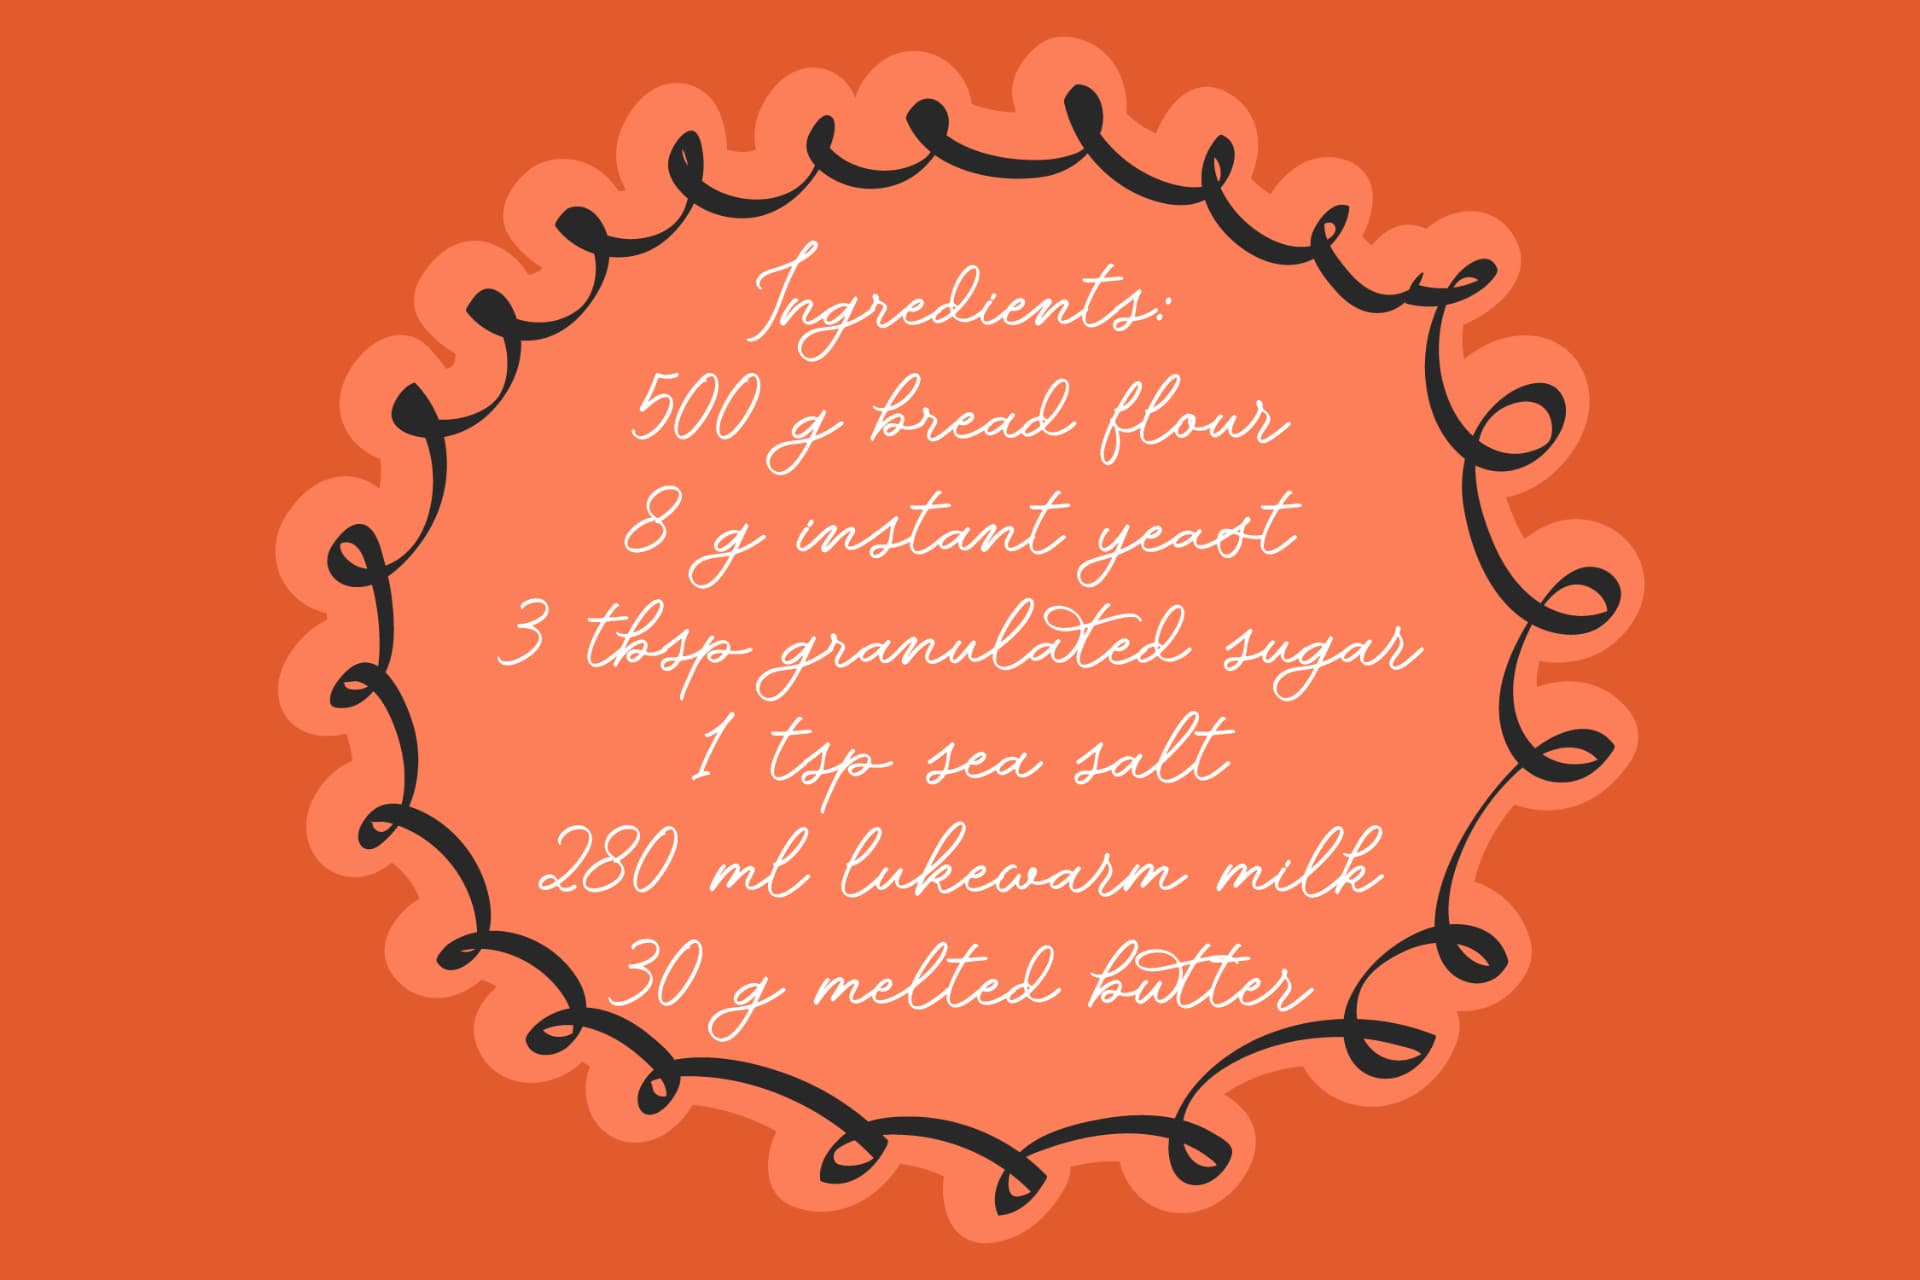 Ingredients:
500 g bread flour
8 g instant yeast
3 tbsp granulated sugar
1 tsp sea salt
280 ml lukewarm milk
30 g melted butter